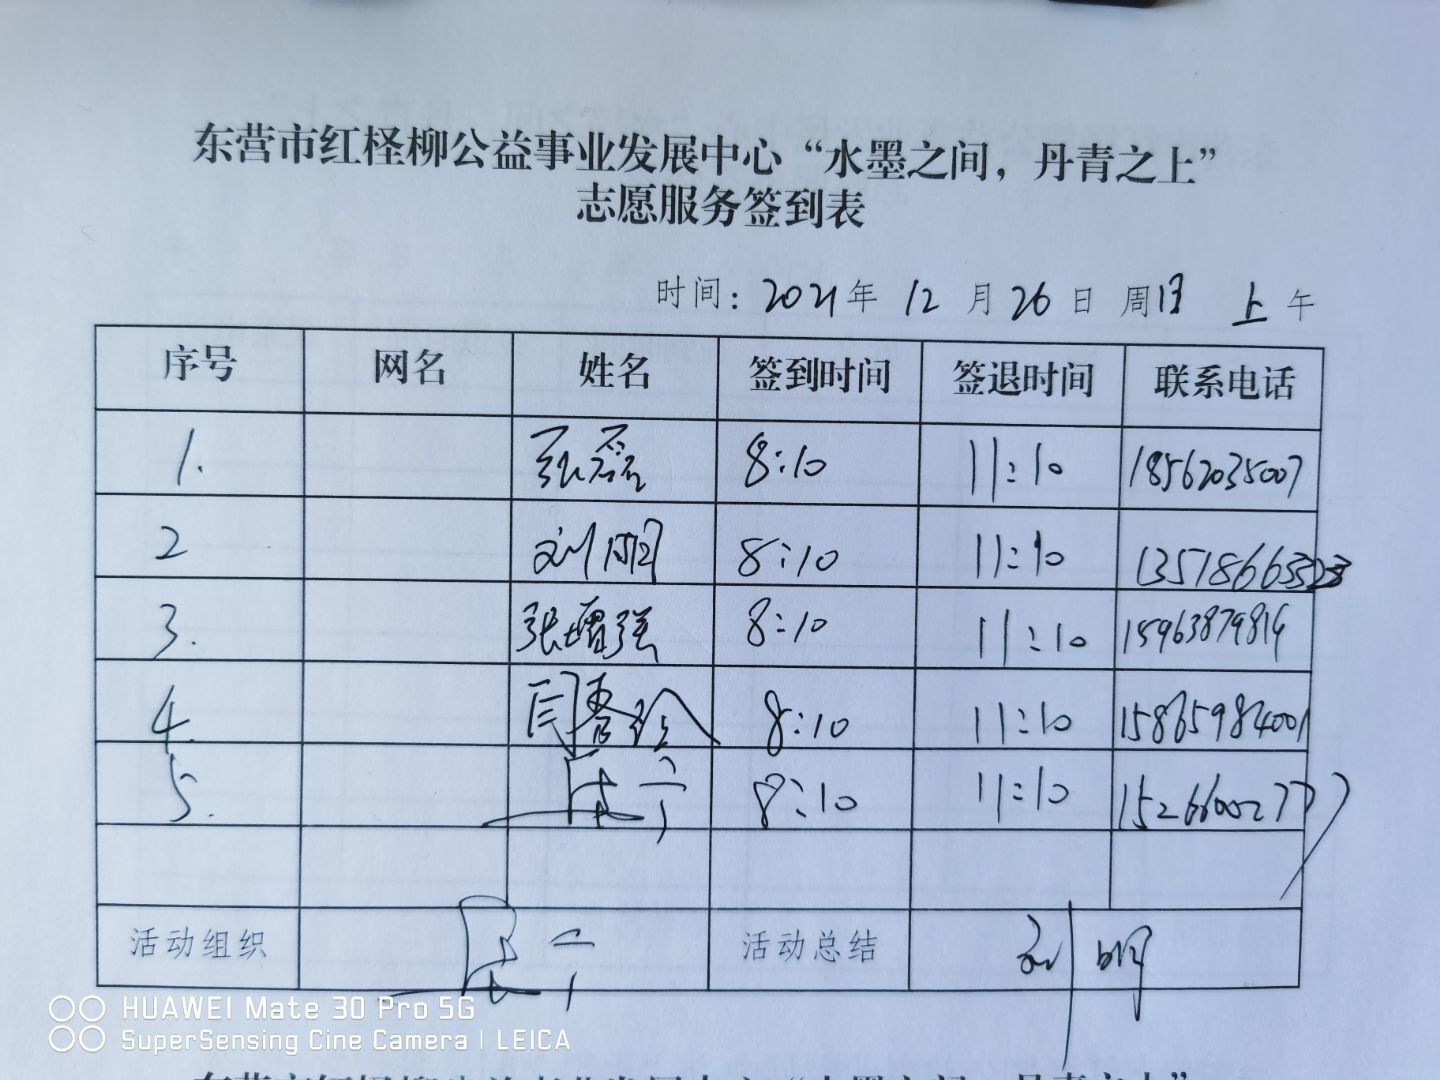 东营市红柽柳公益事业发展中心“水墨之间，丹青之上”
志愿服务签到表
时间：2021年 12 月 26 日 周日 上午
序号 网名 姓名 签到时间 签退时间 联系电话
1. 张磊 8:10 11:10 18562035007
2 刘明 8:10 11:10
3. 张增强 8:10 11:10 15963879816
4. 8:10 11:10 15865984001
5. 8:10 11:10 15266002777
活动组织 活动总结 刘明
HUAWEI Mate 30 Pro 5G
SuperSensing Cine Camera | LEICA